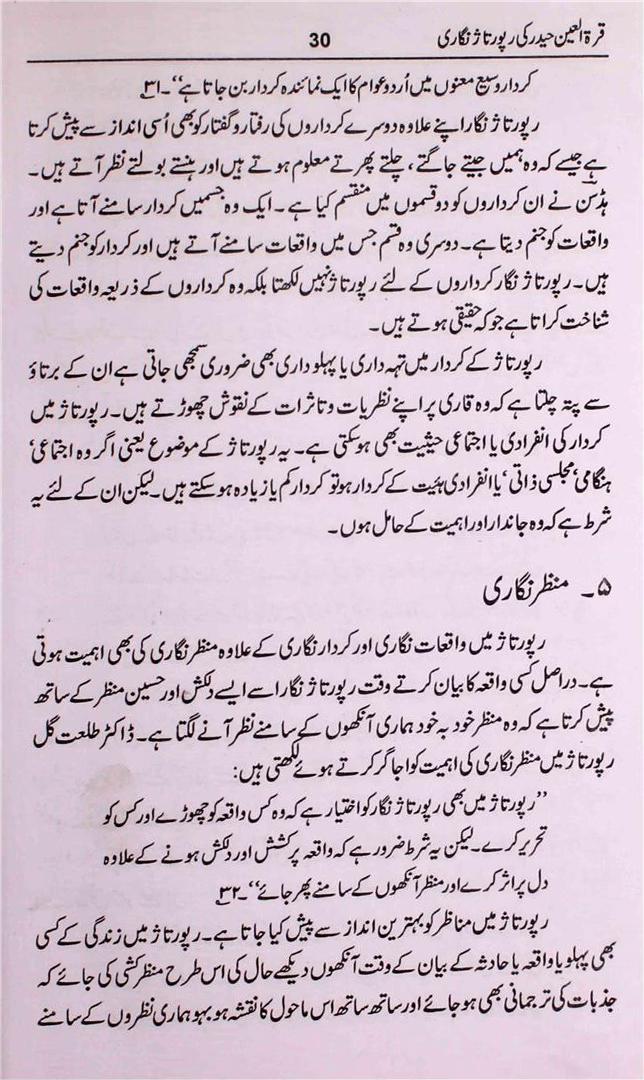 قرۃ العین حیدر کی رپورتاژ نگاری 30
کردار وسیع معنوں میں اُردو عوام کا ایک نمائندہ کردار بن جاتا ہے‘‘۔ ۳۱؎
رپورتاژ نگار اپنے علاوہ دوسرے کرداروں کی رفتار و گفتار کو بھی اُسی انداز سے پیش کرتا
ہے جیسے کہ وہ ہمیں جیتے جاگتے ، چلتے پھرتے معلوم ہوتے ہیں اور ہنستے بولتے نظر آتے ہیں۔
ہڈسن نے ان کرداروں کو دو قسموں میں منقسم کیا ہے۔ ایک وہ جسمیں کردار سامنے آتا ہے اور
واقعات کو جنم دیتا ہے۔ دوسری وہ قسم جس میں واقعات سامنے آتے ہیں اور کردار کو جنم دیتے
ہیں۔ رپورتاژ نگار کرداروں کے لئے رپورتاژ نہیں لکھتا بلکہ وہ کرداروں کے ذریعہ واقعات کی
شناخت کراتا ہے جو کہ حقیقی ہوتے ہیں۔
رپورتاژ کے کردار میں تہہ داری یا پہلو داری بھی ضروری سمجھی جاتی ہے ان کے برتاؤ
سے پتہ چلتا ہے کہ وہ قاری پر اپنے نظریات و تاثرات کے نقوش چھوڑتے ہیں۔ رپورتاژ میں
کردار کی انفرادی یا اجتماعی حیثیت بھی ہو سکتی ہے۔ یہ رپورتاژ کے موضوع یعنی اگر وہ اجتماعی‘
ہنگامی‘ مجلسی ذاتی‘ یا انفرادی ہیئت کے کردار ہو تو کردار کم یا زیادہ ہو سکتے ہیں۔ لیکن ان کے لئے یہ
شرط ہے کہ وہ جاندار اور اہمیت کے حامل ہوں۔
۵۔ منظر نگاری
رپورتاژ میں واقعات نگاری اور کردار نگاری کے علاوہ منظر نگاری کی بھی اہمیت ہوتی
ہے۔ دراصل کسی واقعہ کا بیان کرتے وقت رپورتاژ نگار اسے ایسے دلکش اور حسین منظر کے ساتھ
پیش کرتا ہے کہ وہ منظر خود بہ خود ہماری آنکھوں کے سامنے نظر آنے لگتا ہے۔ ڈاکٹر طلعت گل
رپورتاژ میں منظر نگاری کی اہمیت کو اجاگر کرتے ہوئے لکھتی ہیں:
’’رپورتاژ میں بھی رپورتاژ نگار کو اختیار ہے کہ وہ کس واقعہ کو چھوڑے اور کس کو
تحریر کرے۔ لیکن یہ شرط ضرور ہے کہ واقعہ پرکشش اور دلکش ہونے کے علاوہ
دل پر اثر کرے اور منظر آنکھوں کے سامنے پھر جائے‘‘۔ ۳۲؎
رپورتاژ میں مناظر کو بہترین انداز سے پیش کیا جاتا ہے۔ رپورتاژ میں زندگی کے کسی
بھی پہلو یا واقعہ یا حادثہ کے بیان کے وقت آنکھوں دیکھے حال کی اس طرح منظر کشی کی جائے کہ
جذبات کی ترجمانی بھی ہو جائے اور ساتھ ساتھ اس ماحول کا نقشہ ہو بہو ہماری نظروں کے سامنے